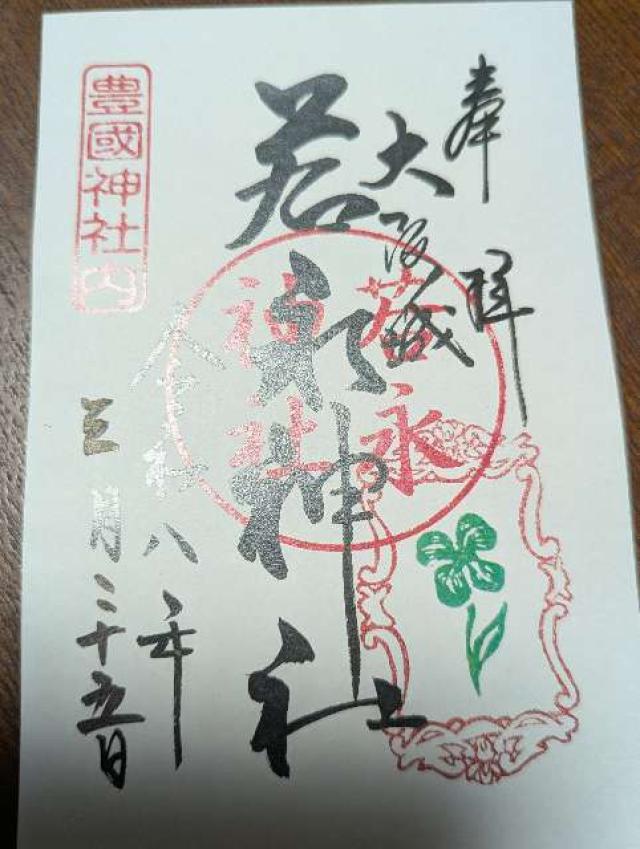 奉拝
大阪城
若永神社
若永
神社
令和八年
三月二十五日
豊國神社内